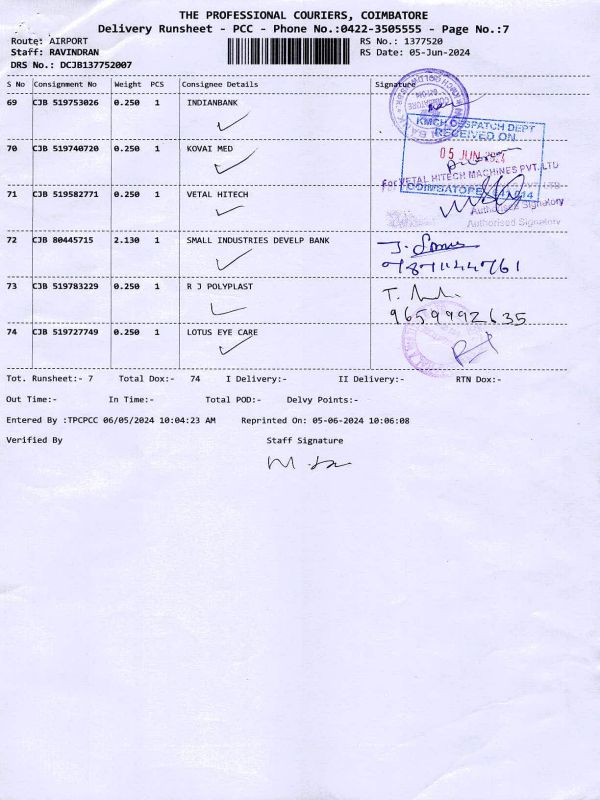 THE PROFESSIONAL COURIERS, COIMBATORE
Delivery Runsheet - PCC - Phone No.:0422-3505555 - Page No.:7
Route: AIRPORT RS No.: 1377520
Staff: RAVINDRAN RS Date: 05-Jun-2024
DRS No.: DCJB137752007
S No Consignment No Weight PCS Consignee Details Signature
69 CJB 519753026 0.250 1 INDIANBANK
KMCH DESPATCH DEPT
RECEIVED ON
70 CJB 519740720 0.250 1 KOVAI MED
05 JUN 2024
For VETAL HITECH MACHINES PVT. LTD
COIMBATORE - 641 014
71 CJB 519582771 0.250 1 VETAL HITECH
Authorised Signatory
Authorised Signatory
72 CJB 80445715 2.130 1 SMALL INDUSTRIES DEVELP BANK
73 CJB 519783229 0.250 1 R J POLYPLAST
9659992635
74 CJB 519727749 0.250 1 LOTUS EYE CARE
Tot. Runsheet:- 7 Total Dox:- 74 I Delivery:- II Delivery:- RTN Dox:-
Out Time:- In Time:- Total POD:- Delvy Points:-
Entered By :TPCPCC 06/05/2024 10:04:23 AM Reprinted On: 05-06-2024 10:06:08
Verified By Staff Signature